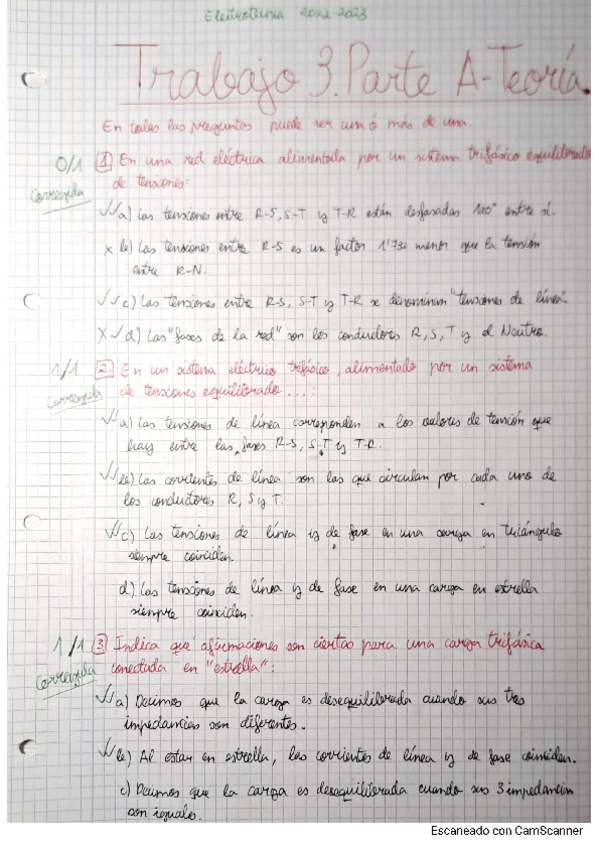 Electrotecnia 2022-2023
Trabajo 3. Parte A-Teoría.
En todas las preguntas puede ser una ó más de una.
0/1 1 En una red eléctrica alimentada por un sistema trifásico equilibrado
Corregida de tensiones:
✓✓a) Las tensiones entre R-S, S-T y T-R están desfasadas 120° entre sí.
x b) Las tensiones entre R-S es un factor 1'732 menor que la tensión
entre R-N.
✓✓c) Las tensiones entre R-S, S-T y T-R se denominan "tensiones de línea".
X✓d) Las "fases de la red" son los conductores R, S, T y el Neutro.
1/1 2. En un sistema eléctrico trifásico, alimentado por un sistema
Corregida de tensiones equilibrado ...:
✓✓a) Las tensiones de línea corresponden a los valores de tensión que
hay entre las fases R-S, S-T y T-R.
✓✓b) Las corrientes de línea son las que circulan por cada uno de
los conductores R, S y T.
✓✓c) Las tensiones de línea y de fase en una carga en triángulo
siempre coinciden.
d) Las tensiones de línea y de fase en una carga en estrella
siempre coinciden.
1/1 3 Indica que afirmaciones son ciertas para una carga trifásica
Corregida conectada en "estrella":
✓✓a) Decimos que la carga es desequilibrada cuando sus tres
impedancias son diferentes.
✓✓b) Al estar en estrella, las corrientes de línea y de fase coinciden.
c) Decimos que la carga es desequilibrada cuando sus 3 impedancias
son iguales.
Escaneado con CamScanner